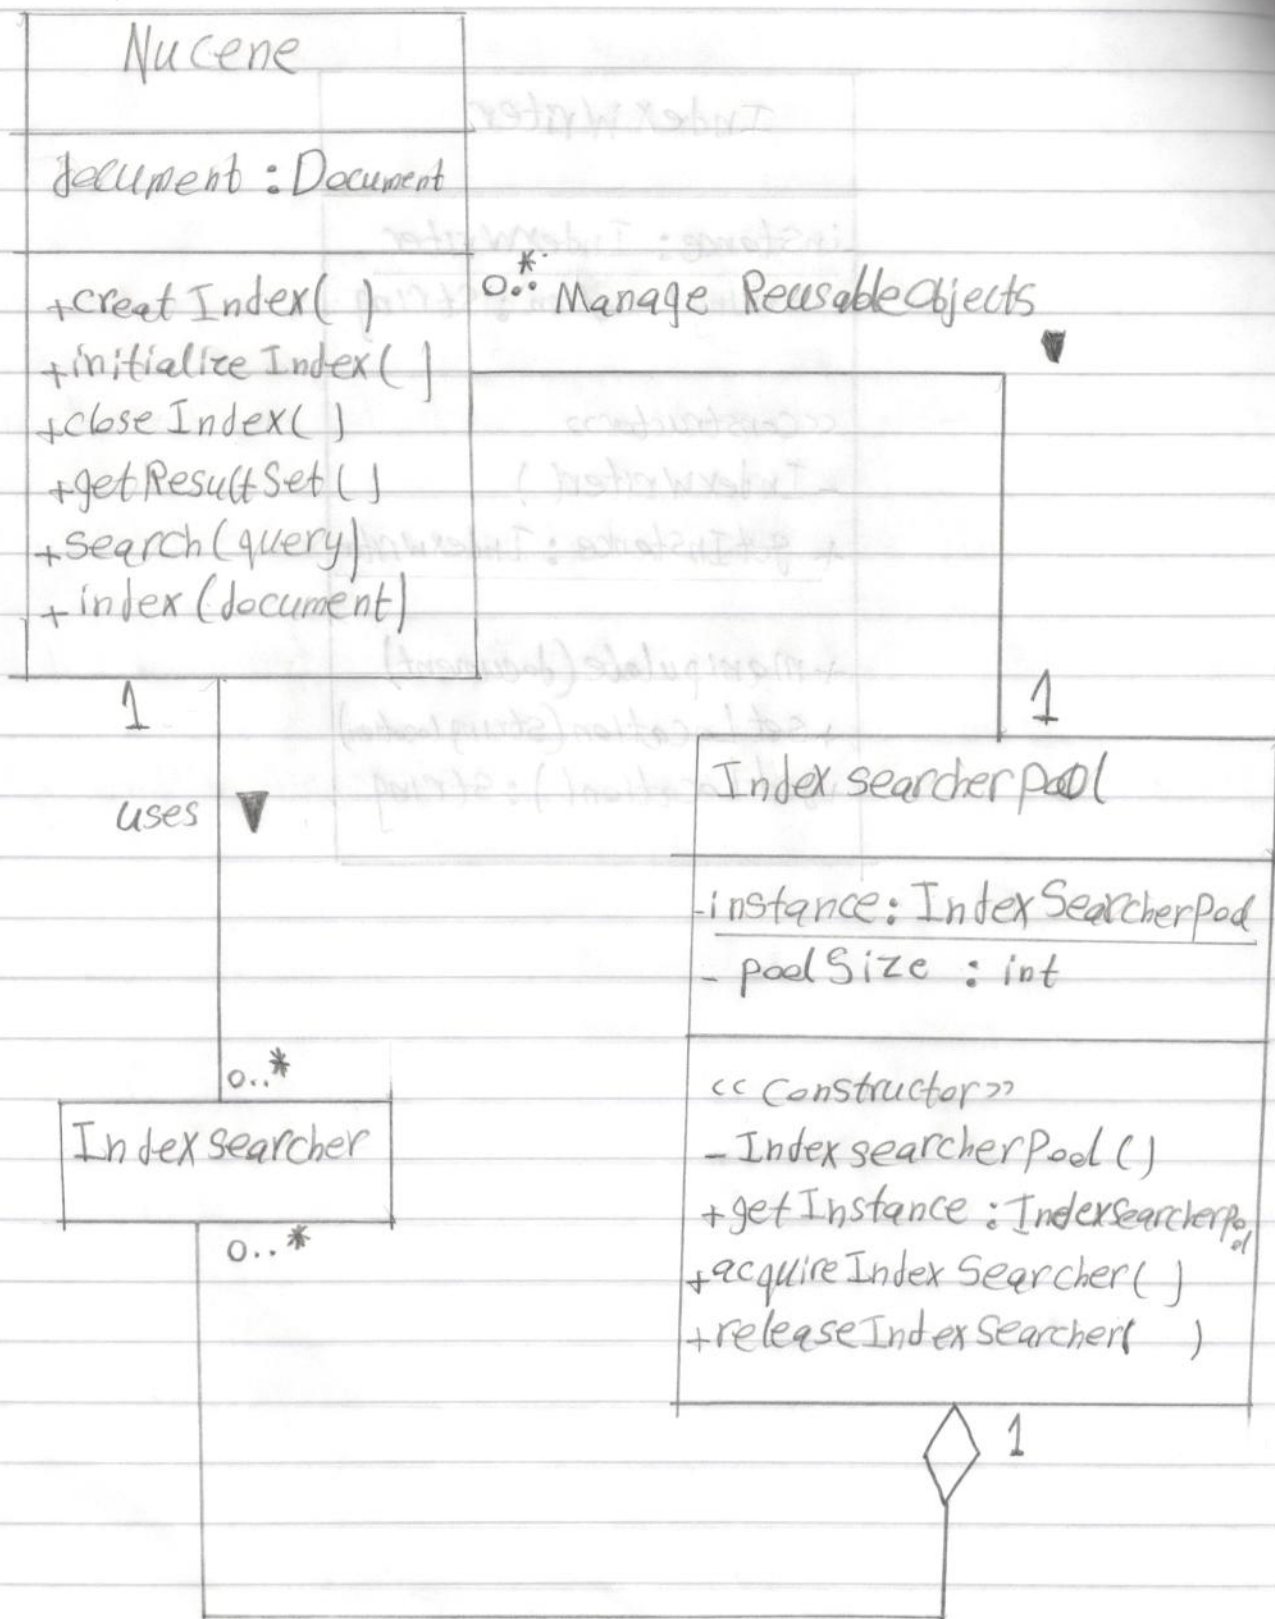 Nucene
document : Document
+creat Index( )
+initialize Index( )
+close Index( )
+getResultSet( )
+search(query)
+ index (document)
0..*
Manage ReusableObjects
1
uses
0..*
Indexsearcher
0..*
1
Index searcher pool
-instance: IndexSearcherPool
- poolSize : int
<< Constructor >>
- IndexsearcherPool ()
+getInstance : IndexsearcherPool
+acquireIndex Searcher( )
+releaseIndex Searcher( )
1